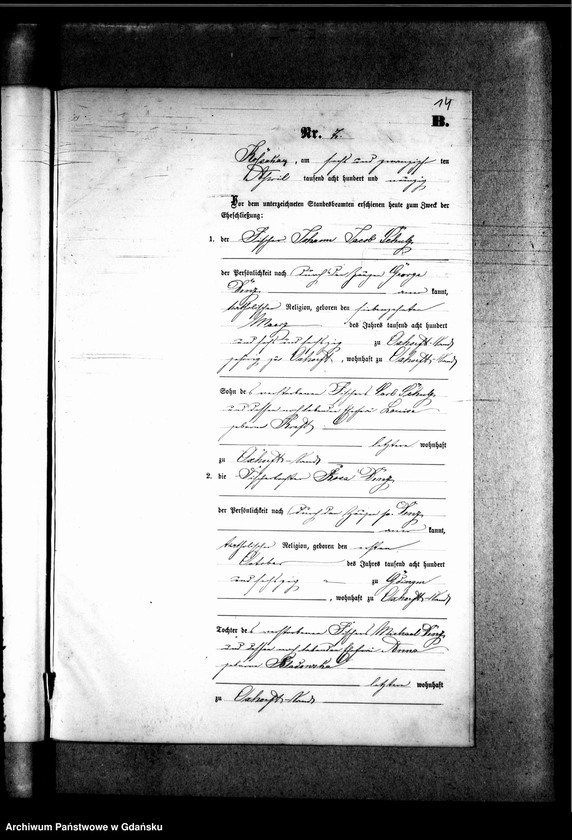 14
B.
Nr. 7.
Kossakau, am sechs und zwanzigsten
April tausend acht hundert und neunzig
Vor dem unterzeichneten Standesbeamten erschienen heute zum Zweck der
Eheschließung:
1. der Fischer Johann Jacob
der Persönlichkeit nach durch den Zeugen George
kannt,
katholischer Religion, geboren den siebenzehnten
Maerz des Jahres tausend acht hundert
und sechs und sechszig zu Oxhoeft
gehörig zu Oxhoeft, wohnhaft zu Oxhoeft
Sohn des verstorbenen Fischers Carl
und dessen noch lebenden Ehefrau Louise
geborene Kreft
letztere wohnhaft
zu Oxhoeft
2. die Fischertochter Rosa
der Persönlichkeit nach durch den Zeugen p.
kannt,
katholischer Religion, geboren den ersten
October des Jahres tausend acht hundert
und sechszig zu Gdingen
, wohnhaft zu Oxhoeft
Tochter des verstorbenen Fischers Michael
und dessen noch lebenden Ehefrau Anna
geborene
letztere wohnhaft
zu Oxhoeft
Archiwum Państwowe w Gdańsku